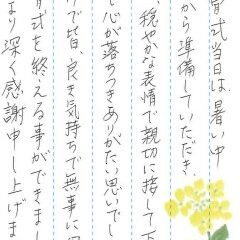 式当日は、暑い中
から準備していただき、
穏やかな表情で親切に接して下
心が落ちつきありがたい思いでし
で皆、良き気持ちで無事に
式を終える事ができまし
より深く感謝申し上げま